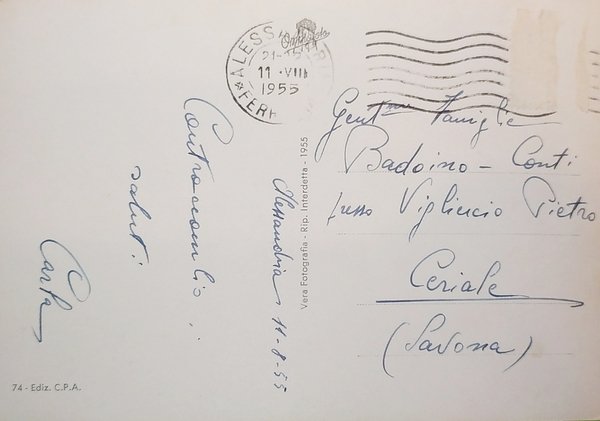 ALESSANDRIA
21-22
11 · VIII
1955
FERR
Alessandria 11-8-55
Contraccambio
saluti
Carla
Vera Fotografia - Rip. Interdetta - 1955
Gent.me Famiglie
Badoino - Conti
presso Vigliercio Pietro
Ceriale
(Savona)
74 - Ediz. C.P.A.